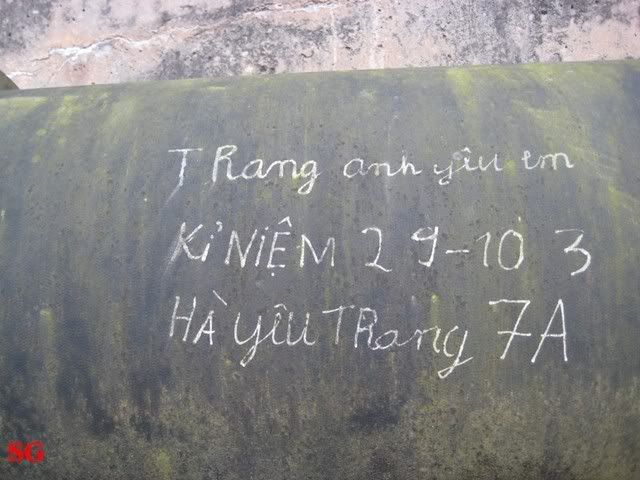 TRang anh yêu em
Kỉ NiỆM 29-10 3
HÀ yêu TRang 7A
SG